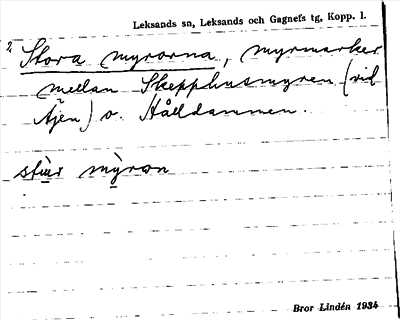 Leksands sn, Leksands och Gagnefs tg, Kopp. l.
2 Stora myrorna, myrmarker
mellan Skepphusmyren (vid
Åjen) o. Hålldammen.
Bror Lindén 1934